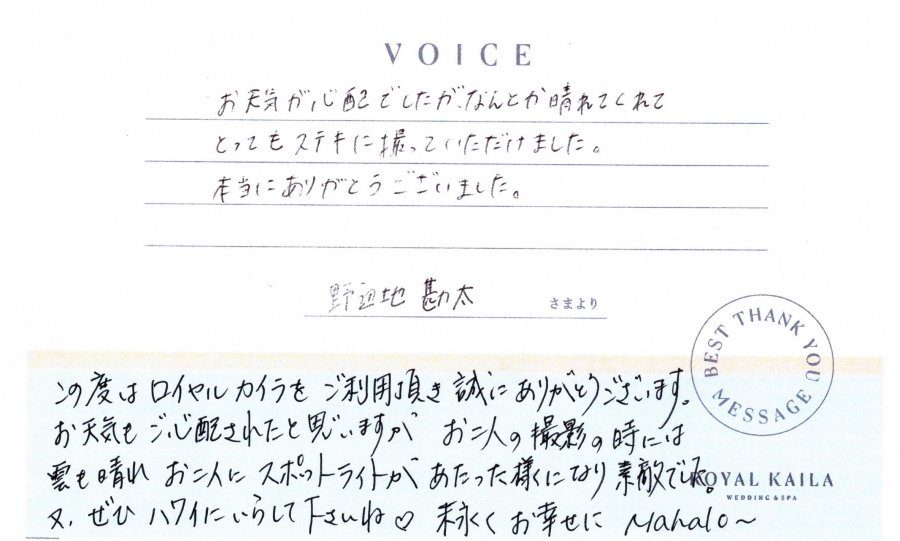 VOICE
お天気が心配でしたが、なんとか晴れてくれて
とってもステキに撮っていただけました。
本当にありがとうございました。
野辺地 勘太 さまより
BEST THANK YOU MESSAGE
この度はロイヤルカイラをご利用頂き誠にありがとうございます。
お天気もご心配されたと思いますが お二人の撮影の時には
雲も晴れ お二人にスポットライトがあたった様になり素敵でした。
ROYAL KAILA
WEDDING & SPA
又、ぜひハワイにいらして下さいね♡ 末永くお幸せに Mahalo～